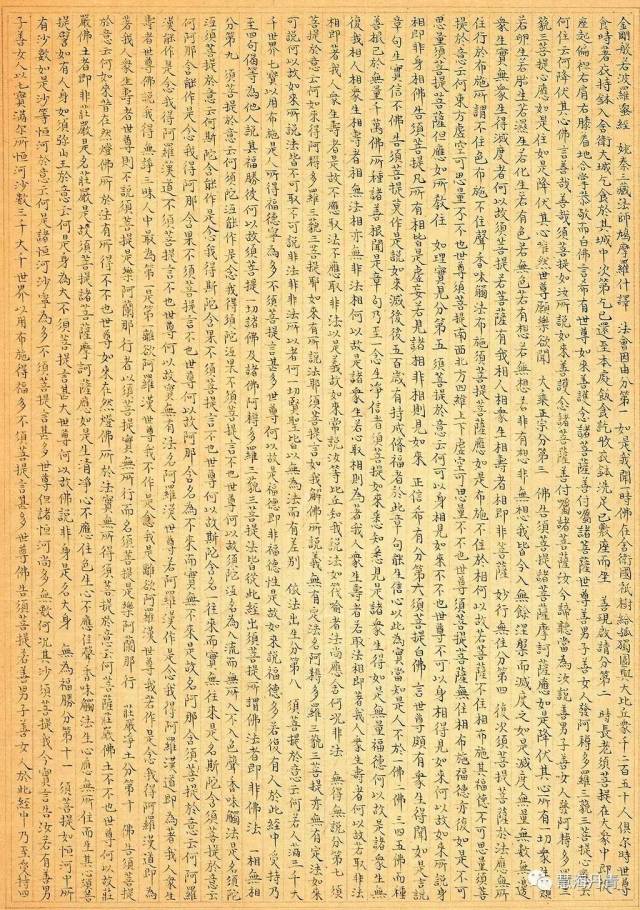 金剛般若波羅蜜經 姚秦三藏法師鳩摩羅什譯 法會因由分第一 如是我聞一時佛在舍衛國祇樹給孤獨園與大比丘衆千二百五十人俱爾時世尊
食時著衣持鉢入舍衛大城乞食於其城中次第乞已還至本處飯食訖收衣鉢洗足已敷座而坐 善現啟請分第二 時長老須菩提在大衆中即從
座起偏袒右肩右膝着地合掌恭敬而白佛言希有世尊如來善護念諸菩薩善付囑諸菩薩世尊善男子善女人發阿耨多羅三藐三菩提心應云
何住云何降伏其心佛言善哉善哉須菩提如汝所說如來善護念諸菩薩善付囑諸菩薩汝今諦聽當為汝說善男子善女人發阿耨多羅三
藐三菩提心應如是住如是降伏其心唯然世尊願樂欲聞 大乘正宗分第三 佛告須菩提諸菩薩摩訶薩應如是降伏其心所有一切衆生之類
若卵生若胎生若濕生若化生若有色若無色若有想若無想若非有想非無想我皆令入無餘涅槃而滅度之如是滅度無量無數無邊
衆生實無衆生得滅度者何以故須菩提若菩薩有我相人相衆生相壽者相即非菩薩 妙行無住分第四 復次須菩提菩薩於法應無所
住行於布施所謂不住色布施不住聲香味觸法布施須菩提菩薩應如是布施不住於相何以故若菩薩不住相布施其福德不可思量須菩
提於意云何東方虛空可思量不不也世尊須菩提南西北方四維上下虛空可思量不不也世尊須菩提菩薩無住相布施福德亦復如是不可思
量須菩提菩薩但應如所教住 如理實見分第五 須菩提於意云何可以身相見如來不不也世尊不可以身相得見如來何以故如來所說身
相即非身相佛告須菩提凡所有相皆是虛妄若見諸相非相則見如來 正信希有分第六 須菩提白佛言世尊頗有衆生得聞如是言說
章句生實信不佛告須菩提莫作是說如來滅後後五百歲有持戒修福者於此章句能生信心以此為實當知是人不於一佛二佛三四五佛而種
善根已於無量千萬佛所種諸善根聞是章句乃至一念生淨信者須菩提如來悉知悉見是諸衆生得如是無量福德何以故是諸衆生無
復我相人相衆生相壽者相無法相亦無非法相何以故是諸衆生若心取相則為著我人衆生壽者若取法相即著我人衆生壽者何以故若取非法
相即著我人衆生壽者是故不應取法不應取非法以是義故如來常說汝等比丘知我說法如筏喻者法尚應捨何況非法 無得無說分第七 須
菩提於意云何如來得阿耨多羅三藐三菩提耶如來有所說法耶須菩提言如我解佛所說義無有定法名阿耨多羅三藐三菩提亦無有定法如來
可說何以故如來所說法皆不可取不可說非法非非法所以者何一切賢聖皆以無為法而有差別 依法出生分第八 須菩提於意云何若人滿三千大
千世界七寶以用布施是人所得福德寧為多不須菩提言甚多世尊何以故是福德即非福德性是故如來說福德多若復有人於此經中受持乃
至四句偈等為他人說其福勝彼何以故須菩提一切諸佛及諸佛阿耨多羅三藐三菩提法皆從此經出須菩提所謂佛法者即非佛法 一相無相
分第九 須菩提於意云何須陀洹能作是念我得須陀洹果不須菩提言不也世尊何以故須陀洹名為入流而無所入不入色聲香味觸法是名須陀
洹須菩提於意云何斯陀含能作是念我得斯陀含果不須菩提言不也世尊何以故斯陀含名一往來而實無往來是名斯陀含須菩提於意云
何阿那含能作是念我得阿那含果不須菩提言不也世尊何以故阿那含名為不來而實無不來是故名阿那含須菩提於意云何阿羅
漢能作是念我得阿羅漢道不須菩提言不也世尊何以故實無有法名阿羅漢世尊若阿羅漢作是念我得阿羅漢道即為著我人衆生
壽者世尊佛說我得無諍三昧人中最為第一是第一離欲阿羅漢世尊我不作是念我是離欲阿羅漢世尊我若作是念我得阿羅漢道世尊
著我人衆生壽者世尊則不說須菩提是樂阿蘭那行者以須菩提實無所行而名須菩提是樂阿蘭那行 莊嚴淨土分第十 佛告須菩提
於意云何如來昔在然燈佛所於法有所得不不也世尊如來在然燈佛所於法實無所得須菩提於意云何菩薩莊嚴佛土不不也世尊何以故莊
嚴佛土者即非莊嚴是名莊嚴是故須菩提諸菩薩摩訶薩應如是生清淨心不應住色生心不應住聲香味觸法生心應無所住而生其心須菩
提譬如有人身如須弥山王於意云何是身為大不須菩提言甚大世尊何以故佛說非身是名大身 無為福勝分第十一 須菩提如恒河中所
有沙數如是沙等恒河於意云何是諸恒河沙寧為多不須菩提言甚多世尊但諸恒河尚多無數何況其沙須菩提我今實言告汝若有善男
子善女人以七寶滿尔所恒河沙數三千大千世界以用布施得福多不須菩提言甚多世尊佛告須菩提若善男子善女人於此經中乃至受持四